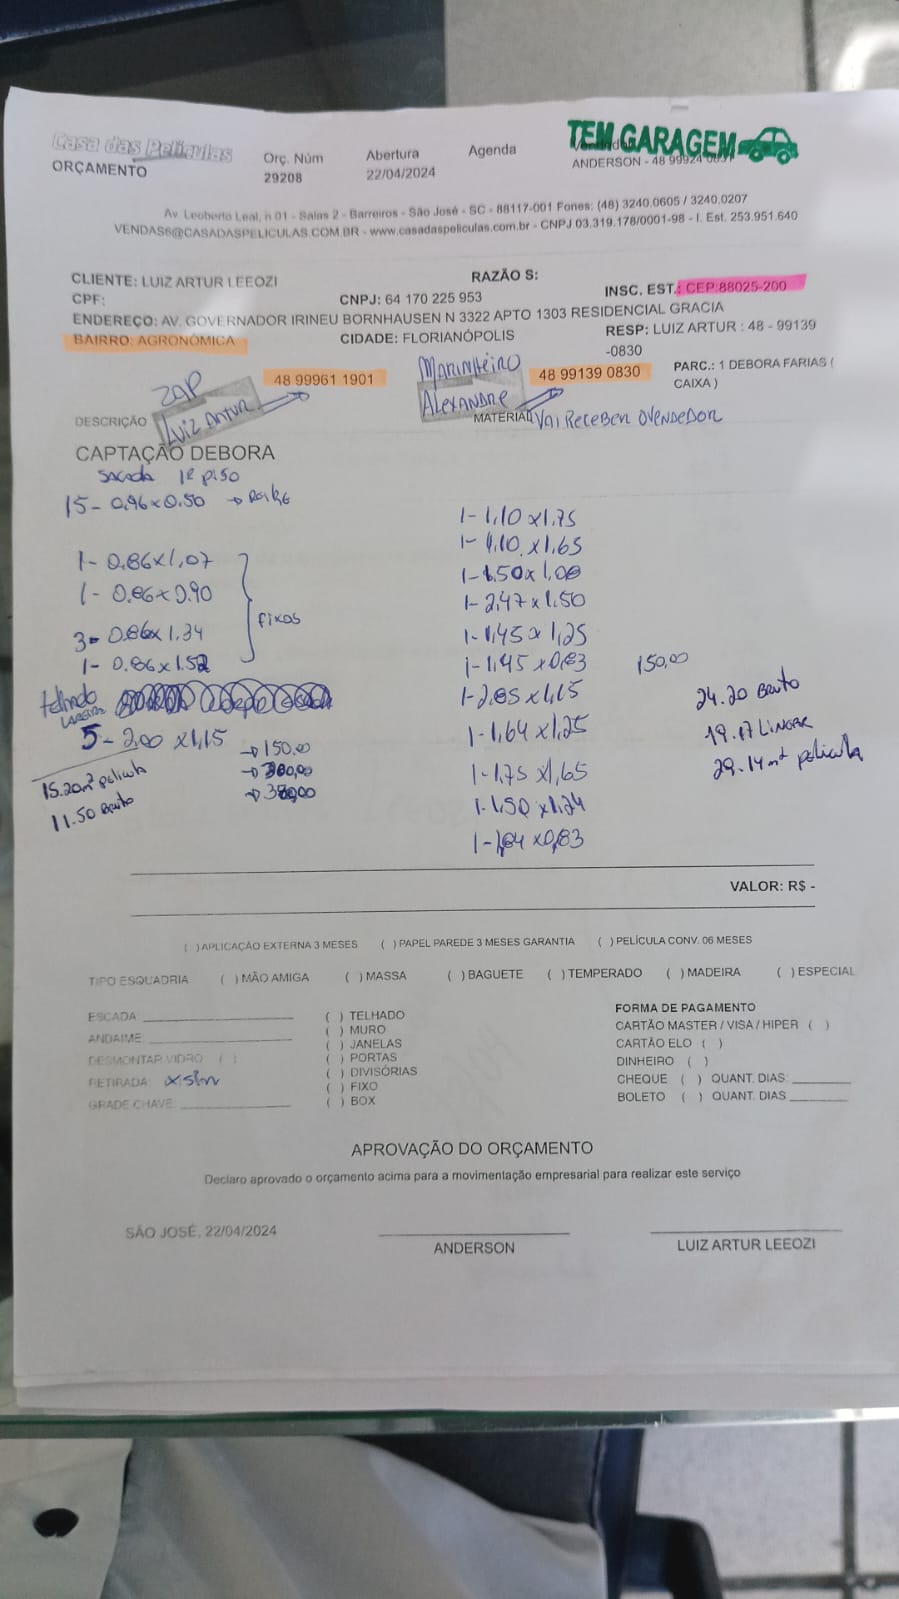 Casa das Películas
ORÇAMENTO
Orç. Núm
29208
Abertura
22/04/2024
Agenda
TEM GARAGEM
ANDERSON - 48 99924 0831
Av. Leoberto Leal, n 01 - Salas 2 - Barreiros - São José - SC - 88117-001 Fones: (48) 3240.0605 / 3240.0207
VENDAS6@CASADASPELICULAS.COM.BR - www.casadaspeliculas.com.br - CNPJ 03.319.178/0001-98 - I. Est. 253.951.640
CLIENTE: LUIZ ARTUR LEEOZI
RAZÃO S:
CPF:
CNPJ: 64 170 225 953
INSC. EST.: CEP:88025-200
ENDEREÇO: AV. GOVERNADOR IRINEU BORNHAUSEN N 3322 APTO 1303 RESIDENCIAL GRACIA
BAIRRO: AGRONÔMICA
CIDADE: FLORIANÓPOLIS
RESP: LUIZ ARTUR : 48 - 99139
-0830
ZAP
Luiz Artur
48 99961 1901
Marinheiro
Alexandre
48 99139 0830
PARC.: 1 DEBORA FARIAS (
CAIXA )
DESCRIÇÃO
MATERIAL
Vai Receber o Vendedor
CAPTAÇÃO DEBORA
Sacada 1º piso
15 - 0,96 x 0,50
1 - 0.86 x 1,07
1 - 0.86 x 0.90
3 - 0.86 x 1.34
1 - 0.86 x 1.52
fixos
5 - 2,00 x 1,15
→ 150.00
→ 380,00
15.20m² pelicula
11.50 Bruto
1 - 1,10 x 1,75
1 - 1,10 x 1,65
1 - 1.50 x 1,00
1 - 2,47 x 1.50
1 - 1,45 x 1,25
1 - 1,45 x 0,83
1 - 2,05 x 1,15
1 - 1,64 x 1,25
1 - 1,75 x 1,65
1 - 1,50 x 1,24
1 - 1,84 x 0,83
150,00
24.20 Bruto
19.17 Linear
29.14m² pelicula
VALOR: R$ -
( ) APLICAÇÃO EXTERNA 3 MESES ( ) PAPEL PAREDE 3 MESES GARANTIA ( ) PELÍCULA CONV. 06 MESES
TIPO ESQUADRIA ( ) MÃO AMIGA ( ) MASSA ( ) BAGUETE ( ) TEMPERADO ( ) MADEIRA ( ) ESPECIAL
ESCADA
ANDAIME:
DESMONTAR VIDRO ( )
RETIRADA: x sim
GRADE CHAVE:
( ) TELHADO
( ) MURO
( ) JANELAS
( ) PORTAS
( ) DIVISÓRIAS
( ) FIXO
( ) BOX
FORMA DE PAGAMENTO
CARTÃO MASTER / VISA / HIPER ( )
CARTÃO ELO ( )
DINHEIRO ( )
CHEQUE ( ) QUANT. DIAS:
BOLETO ( ) QUANT. DIAS
APROVAÇÃO DO ORÇAMENTO
Declaro aprovado o orçamento acima para a movimentação empresarial para realizar este serviço
SÃO JOSÉ, 22/04/2024
ANDERSON
LUIZ ARTUR LEEOZI